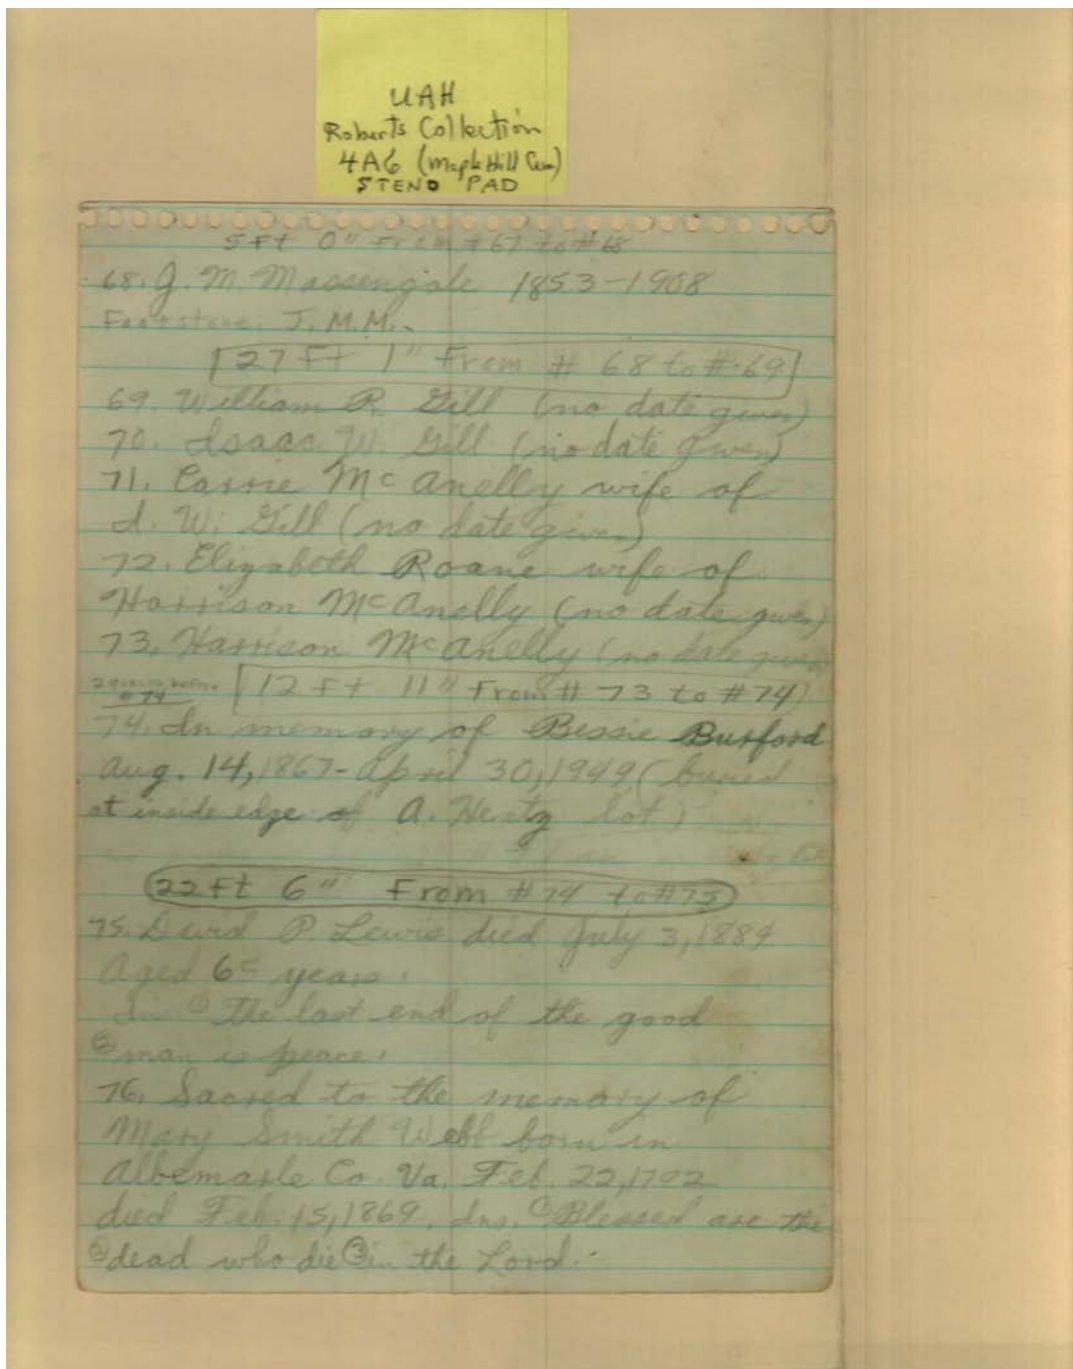 UAH
Roberts Collection
4A6 (Maple Hill Cem)
STENO PAD
5 Ft 0" From #67 to #68
68. J. M. Massengale 1853-1908
Footstone. J. M. M.
27 Ft 1" From # 68 to #69
69. William R. Gill (no date given)
70. Isaac W. Gill (no date given)
71. Carrie McAnelly wife of
I. W. Gill (no date given)
72. Elizabeth Roane wife of
Harrison McAnelly (no date given)
73. Harrison McAnelly (no date given
12 Ft 11" From # 73 to #74
#74
74. In memory of Bessie Burford
Aug. 14, 1867-April 30, 1949 (buried
at inside edge of A. Hertz lot)
22 Ft 6" From #74 to #75
75. David P. Lewis died July 3, 1884
Aged 65 years.
In ① The last end of the good
② man is peace.
76. Sacred to the memory of
Mary Smith Webb born in
Albemarle Co. Va. Feb. 22, 1792
died Feb. 15, 1869. Ins. ① Blessed are the
② dead who die ③ in the Lord.